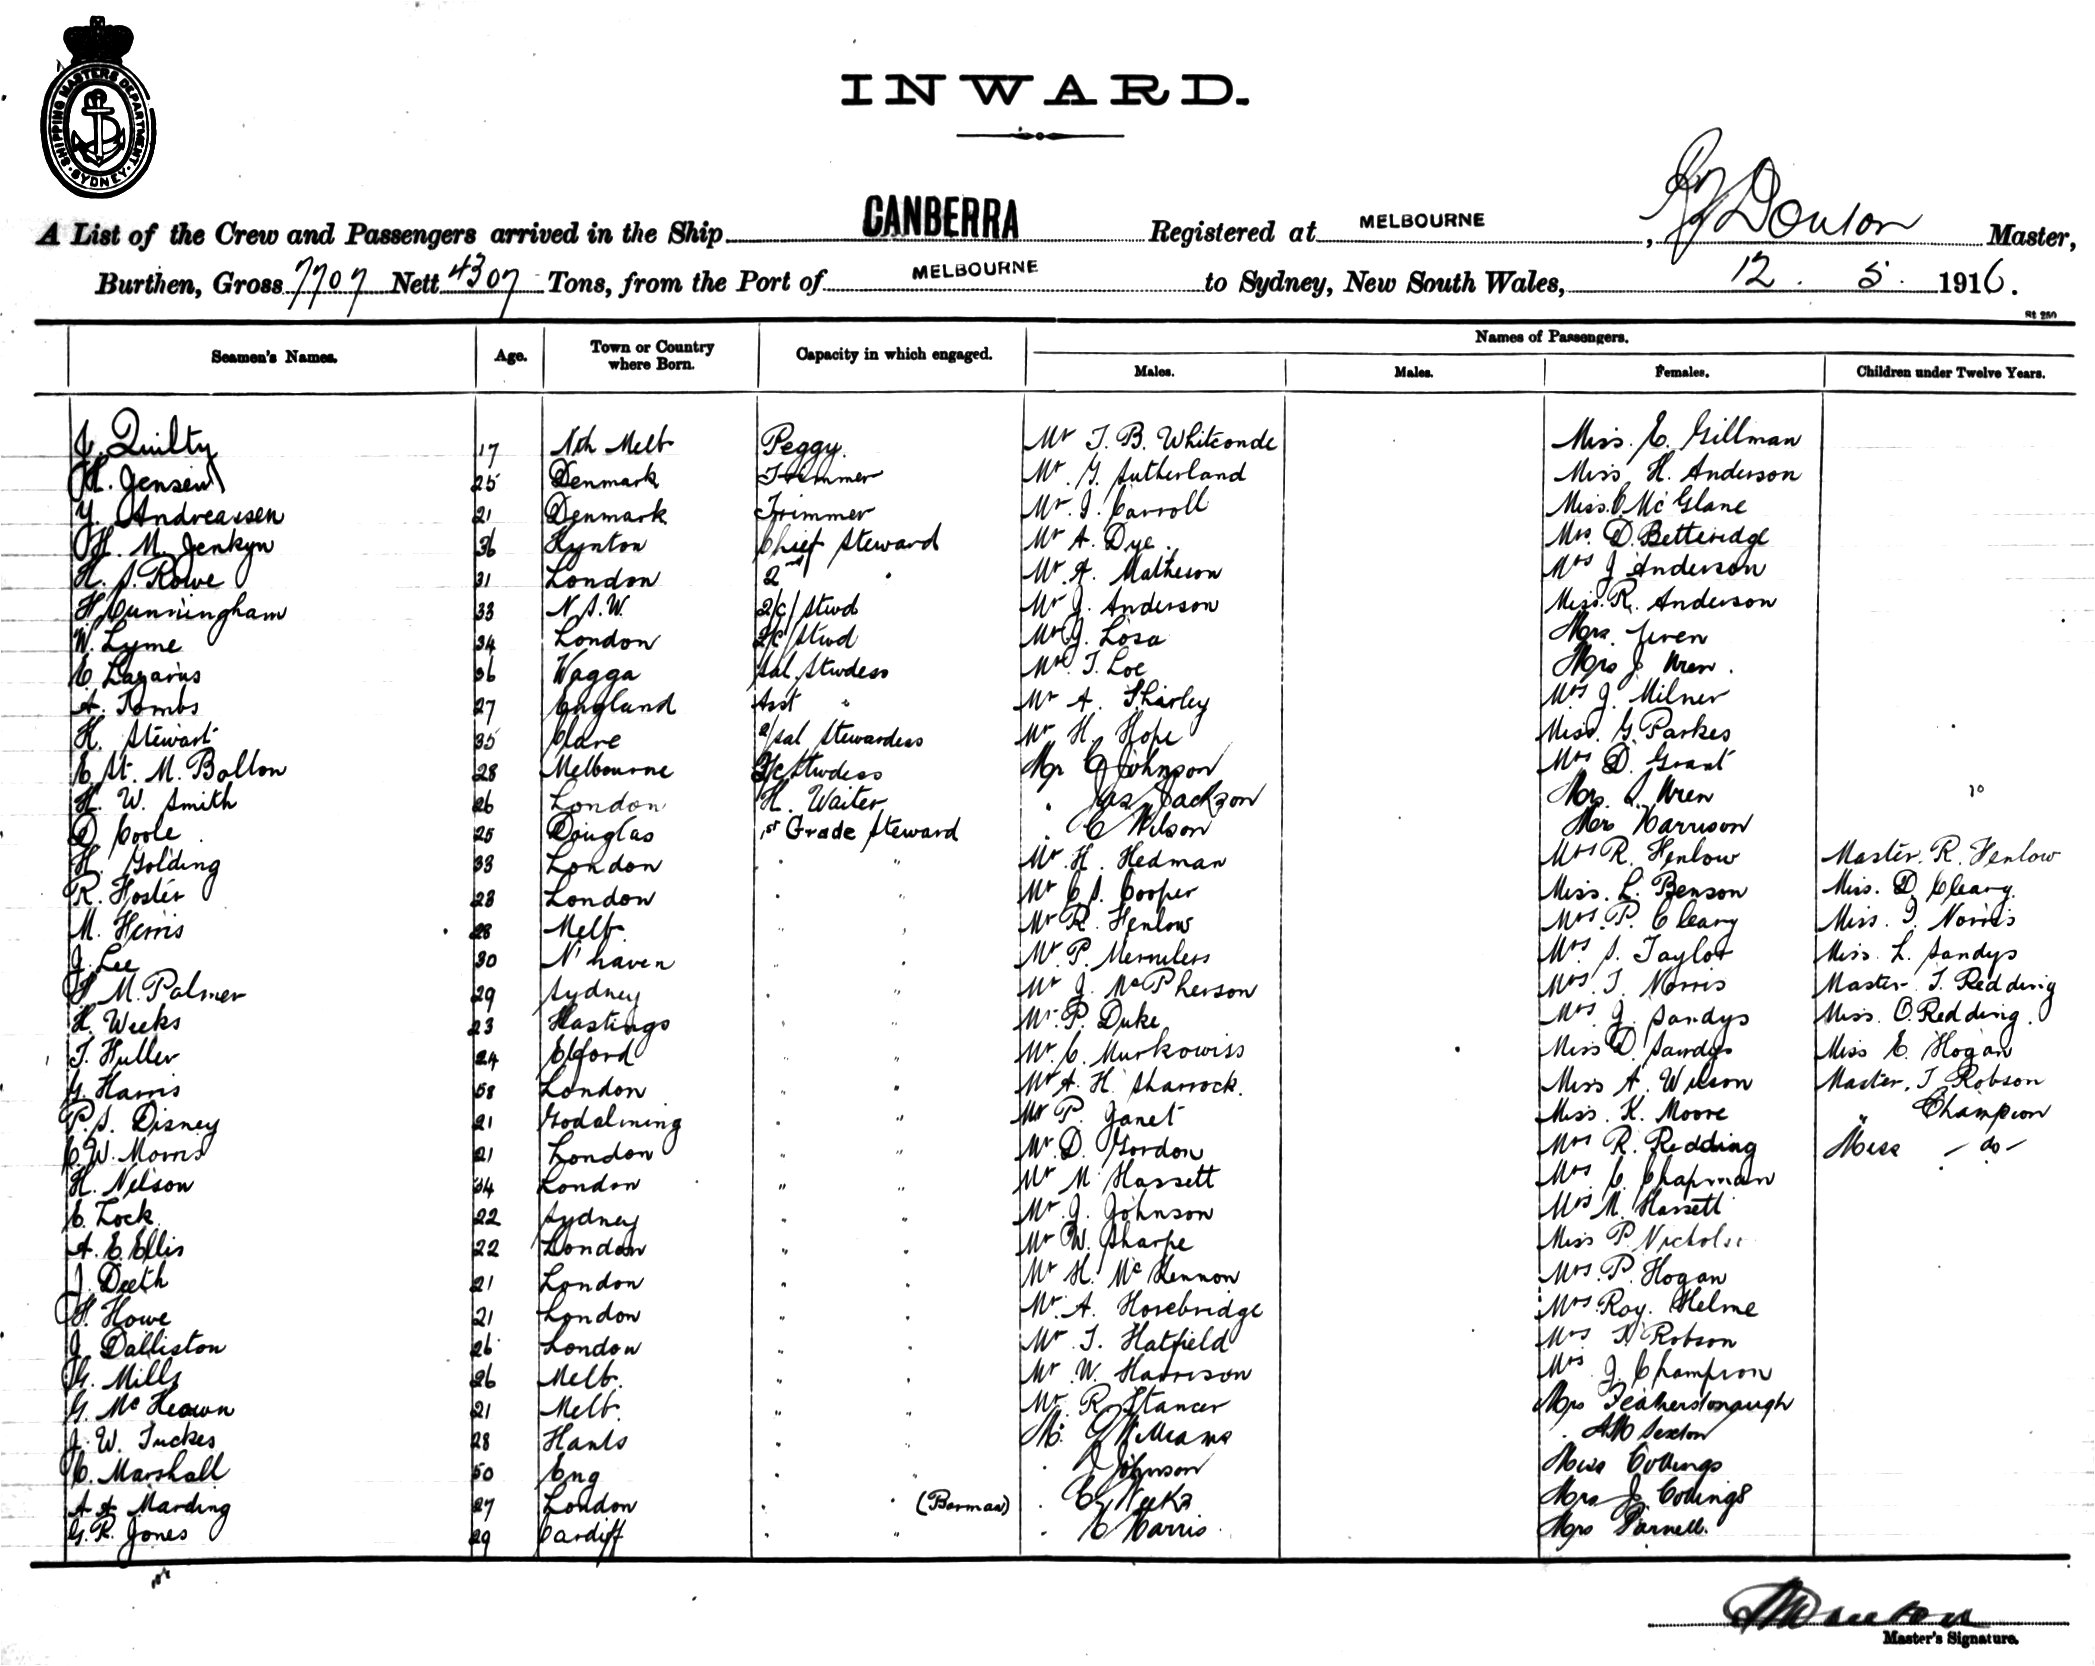 SHIPPING MASTERS DEPARTMENT · SYDNEY ·
INWARD.
A List of the Crew and Passengers arrived in the Ship CANBERRA Registered at MELBOURNE , Master,
Burthen, Gross 7707 Nett 4307 Tons, from the Port of MELBOURNE to Sydney, New South Wales, 12 . 5 . 1916.
St 250
Seamen's Names. Age. Town or Country where Born. Capacity in which engaged. Names of Passengers.
Males. Males. Females. Children under Twelve Years.
J. Quilty 17 Nth Melb Peggy. Mr T. B. Whitconde Miss. E. Gillman
H. Jensen 25 Denmark Trimmer Mr. G. Sutherland Miss H. Anderson
Y. Andreassen 21 Denmark Trimmer Mr. J. Carroll Miss. C. McGlane
H. M. Jenkyn 36 Kynton Chief Steward Mr A. Dye. Mrs. D. Betteridge
H. S. Rowe 31 London 2nd " Mr. A. Matheson Mrs J Anderson
H Cunningham 33 N.S.W. 2/c/ Stwd Mr J. Anderson Miss. R. Anderson
W. Lyme 34 London 2/c/ Stwd Mr J. Losa Mrs.
E. Lazarus 36 Wagga Sal. Stwdess Mr. T. Loe Mrs J. Wren.
A. Tombs 27 England Asst " Mr A. Sharley Mrs J. Milner
H. Stewart 35 Clare 2/Sal Stewardess Mr H. Hope Miss. G. Parkes
E St. M. Bolton 28 Melbourne 2/c Stwdess Mr C Johnson Mrs D. Grant
H. W. Smith 26 London H. Waiter " Jas. Jackson Mrs. S. Wren
D Coole 25 Douglas 1st Grade Steward " C Wilson Mrs Harrison
H. Golding 33 London " " Mr. H. Hedman Mrs R. Henlow Master. R. Henlow
R. Foster 23 London " " Mr C S. Cooper Miss. L. Benson Miss. D. Cleary.
M. Herris 28 Melb. " " Mr R. Henlow Mrs. P. Cleary Miss. J. Norris
J. Lee 30 N'haven " " Mr. P. Merrilees Mrs. S. Taylor Miss. L. Sandys
F M. Palmer 29 Sydney " " Mr J. McPherson Mrs. T. Norris Master T. Redding
H. Weeks 23 Hastings " " Mr. P. Duke Mrs J. Sandys Miss. O. Redding.
T. Fuller 24 " " Mr. C. Murkowiss Miss D. Sandys Miss E. Hogan
G. Harris 58 London " " Mr A. H. Sharrock. Miss A. Wilson Master. T. Robson
P. S. Disney 21 Godalming " " Mr P. Janet Miss. K. Moore " Champion
C. W. Morris 21 London " " Mr. D. Gordon Mrs R. Redding Miss – do –
H. Nelson 34 London " " Mr M Hassett Mrs. C. Chapman
E. Lock 22 Sydney " " Mr. J. Johnson Mrs M. Hassett
A. E. Ellis 22 London " " Mr W. Sharpe Miss P. Nichols
J. Deeth 21 London " " Mr H. McLennon Mrs. P. Hogan
F. Howe 21 London " " Mr. A. Horebridge Mrs Roy. Helme
J Dalliston 26 London " " Mr. T. Hatfield Mrs. T. Robson
G. Mills 26 Melb. " " Mr. W. Harrison Mrs J. Champion
G. McKeown 21 Melb. " " Mr. R. Stancer Mrs Featherstonaugh
J. W. Tuckes 28 Hants " " Mr. G Williams " Sexton
C. Marshall 50 Eng " " " J Johnson Miss Collings
A A Harding 27 London " " (Barman) " Weeks Mrs J. Collings
G. R. Jones 29 Cardiff " " " C Harris. Mrs Parnell.
Master's Signature.